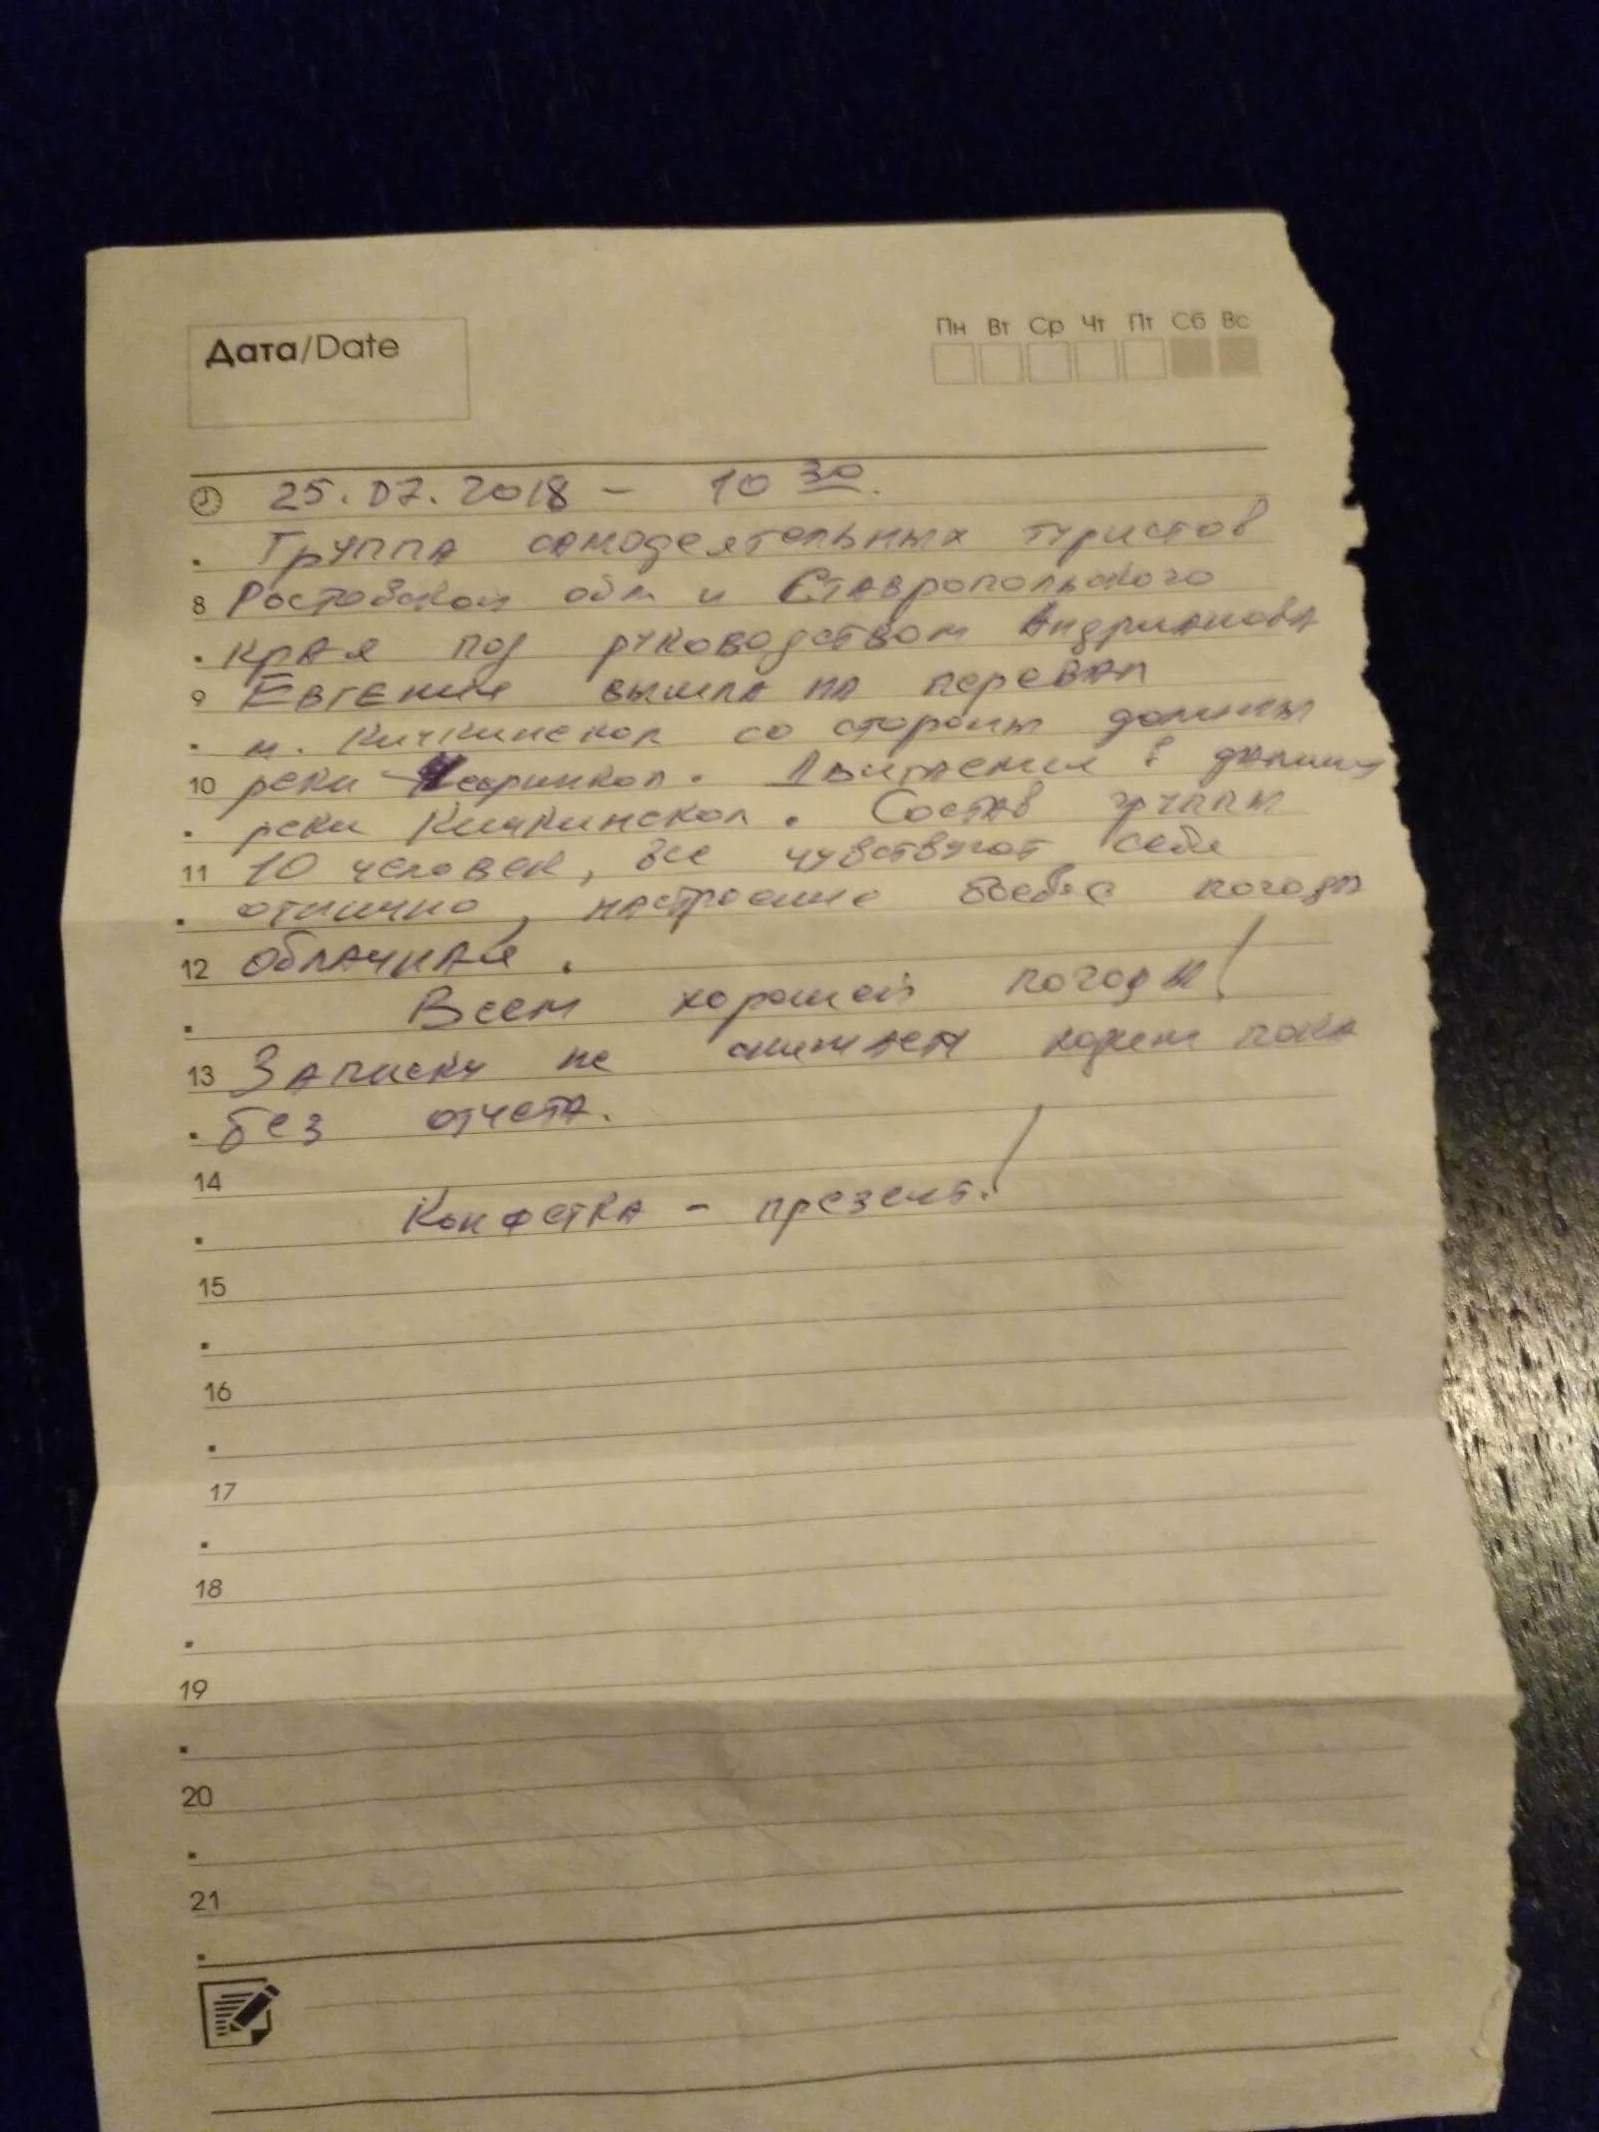 Дата/Date
Пн Вт Ср Чт Пт Сб Вс
25.07.2018 - 10 30.
Группа самодеятельных туристов
8 Ростовской обл и Ставропольского
края под руководством Андрианова
9 Евгения вышла на перевал
м. Кичкинекол со стороны долины
10 реки. Двигаемся в долину
реки Кичкинекол. Состав группы
11 10 человек, все чувствуют себя
отлично, настроение боевое погода
12 облачная.
Всем хорошей погоды!
13 Записку не снимаем ходим пока
без отчета.
14
Конфетка - презент!
15
16
17
18
19
20
21